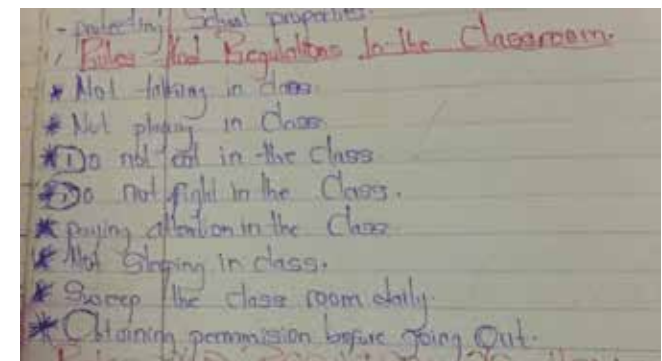 - protecting School properties.
Rules And Regulations In the Classroom.
* Not talking in class
* Not playing in Class
* Do not eat in the class
* Do not fight in the Class.
* paying attention in the Class
* Not Sleping in class.
* Sweep the class room daily.
* Obtaining permmission before going Out.